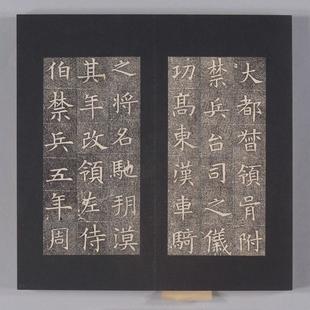 大都督領胥附
禁兵台司之儀
功髙東漢車騎
之將名馳朔漠
其年改領左侍
伯禁兵五年周